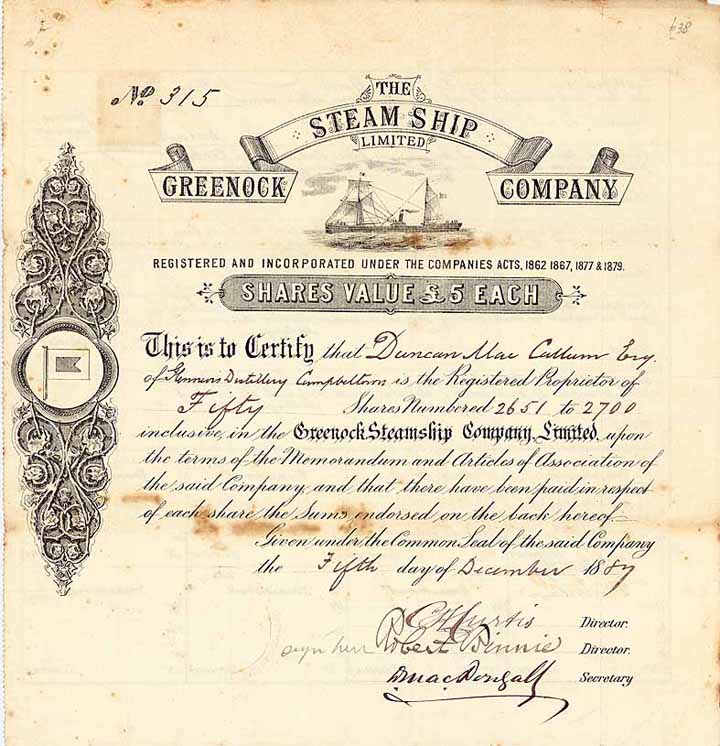 638
No. 315
THE
STEAM SHIP
LIMITED
GREENOCK COMPANY
REGISTERED AND INCORPORATED UNDER THE COMPANIES ACTS, 1862 1867, 1877 & 1879.
SHARES VALUE £5 EACH
This is to Certify that Duncan Mac Callum Esq.
of Glennevis Distillery Campbeltown is the Registered Proprietor of
Fifty Shares Numbered 2651 to 2700
inclusive, in the Greenock Steamship Company, Limited, upon
the terms of the Memorandum and Articles of Association of
the said Company, and that there have been paid in respect
of each share the Sums endorsed on the back hereof.
Given under the Common Seal of the said Company
the Fifth day of December 1887
Curtis Director.
sign here Robert Binnie Director.
D MacDougall Secretary